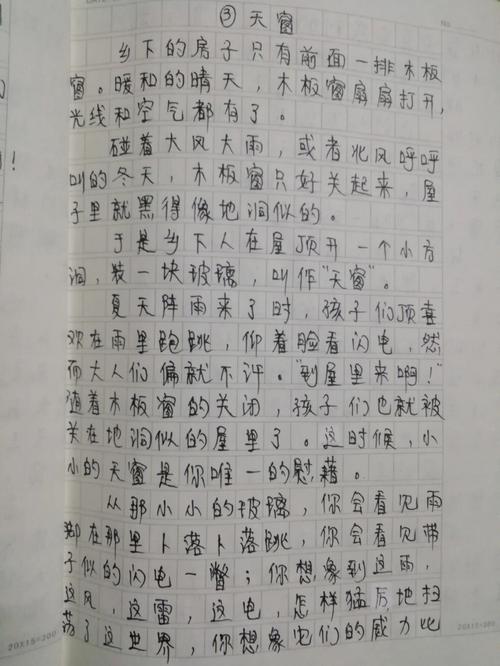 ③天窗
乡下的房子只有前面一排木板
窗。暖和的晴天,木板窗扇扇打开,
光线和空气都有了。
碰着大风大雨,或者北风呼呼
叫的冬天,木板窗只好关起来,屋
子里就黑得像地洞似的。
于是乡下人在屋顶开一个小方
洞,装一块玻璃,叫作"天窗"。
夏天阵雨来了时,孩子们顶喜
欢在雨里跑跳,仰着脸看闪电,然
而大人们偏就不许。"到屋里来啊!"
随着木板窗的关闭,孩子们也就被
关在地洞似的屋里了。这时候,小
小的天窗是你唯一的慰藉。
从那小小的玻璃,你会看见雨
脚在那里卜落卜落跳,你会看见带
子似的闪电一瞥;你想象到这雨,
这风,这雷,这电,怎样猛厉地扫
荡了这世界,你想象它们的威力比
20X15=300
!